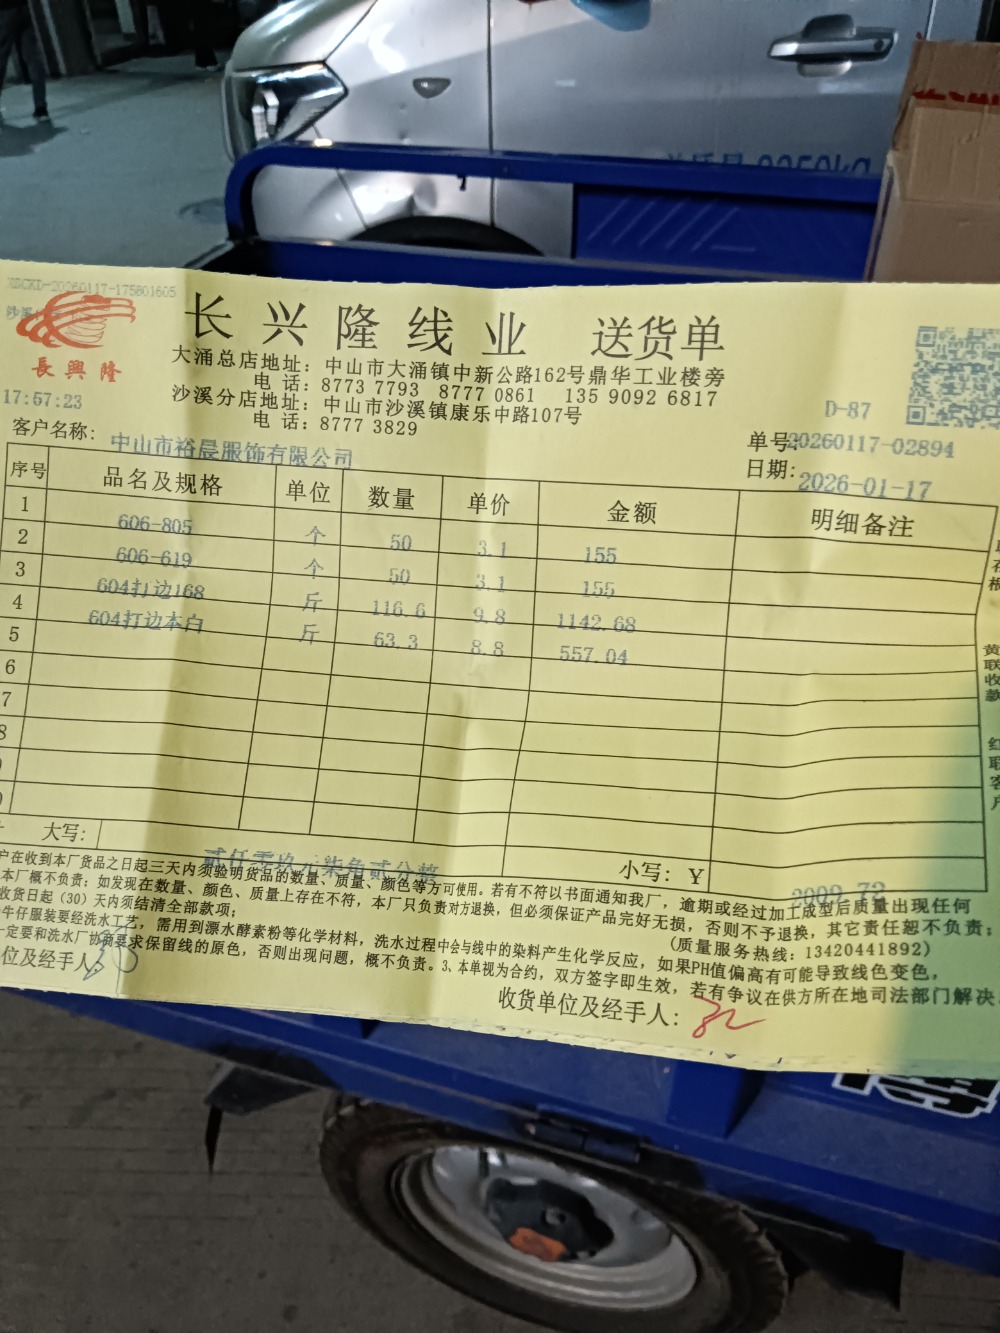 XSCKD-20260117-175801605
沙溪
長興隆
长兴隆线业 送货单
大涌总店地址：中山市大涌镇中新公路162号鼎华工业楼旁
电 话：8773 7793 8777 0861 135 9092 6817
沙溪分店地址：中山市沙溪镇康乐中路107号
电 话：8777 3829
17:57:23
D-87
客户名称：中山市裕晨服饰有限公司
单号：20260117-02894
日期：2026-01-17
序号 品名及规格 单位 数量 单价 金额 明细备注
1 606-805 个 50 3.1 155
2 606-619 个 50 3.1 155
3 604打边168 斤 116.6 9.8 1142.68
4 604打边本白 斤 63.3 8.8 557.04
5
6
7
8
大写：贰仟零玖元柒角贰分整 小写：Y 2009.72
户在收到本厂货品之日起三天内须验明货品的数量、质量、颜色等方可使用。若有不符以书面通知我厂，逾期或经过加工成型后质量出现任何
本厂概不负责；如发现在数量、颜色、质量上存在不符，本厂只负责对方退换，但必须保证产品完好无损，否则不予退换，其它责任恕不负责；
收货日起（30）天内须结清全部款项；
（质量服务热线：13420441892）
牛仔服装要经洗水工艺，需用到漂水酵素粉等化学材料，洗水过程中会与线中的染料产生化学反应，如果PH值偏高有可能导致线色变色，
一定要和洗水厂协商要求保留线的原色，否则出现问题，概不负责。3、本单视为合约，双方签字即生效，若有争议在供方所在地司法部门解决
位及经手人：
收货单位及经手人：
根
黄联收款
红联客户
总质量